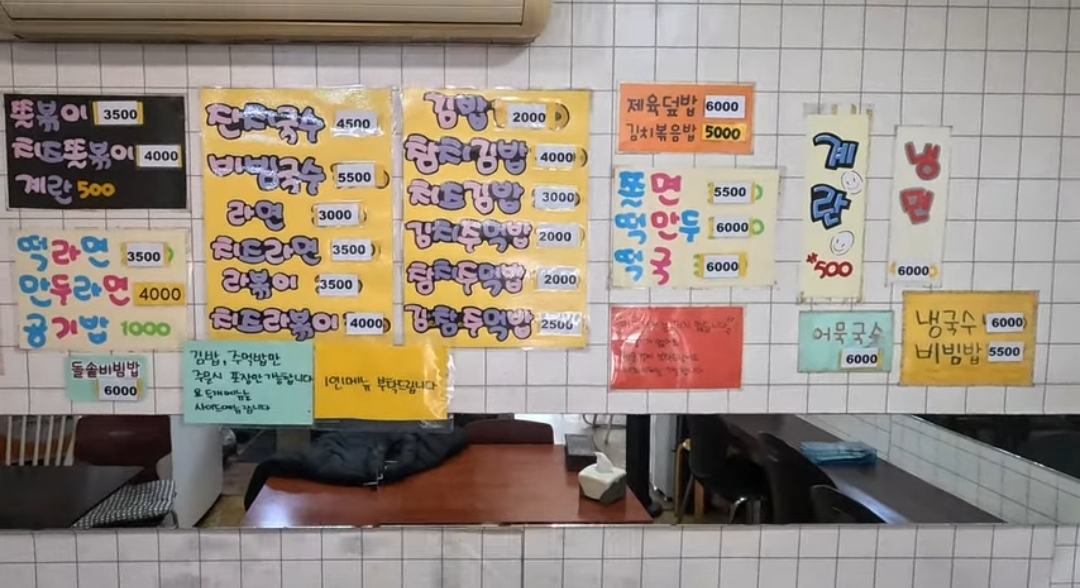 뜻볶이 3500
치즈뜻볶이 4000
계란 500
떡라면 3500
만두라면 4000
공기밥 1000
돌솥비빔밥
6000
잔치국수 4500
비빔국수 5500
라면 3000
치즈라면 3500
라볶이 3500
치즈라볶이 4000
김밥 2000
참치김밥 4000
치즈김밥 3000
김치주먹밥 2000
참치주먹밥 2000
김참주먹밥 2500
김밥, 주먹밥만
주문시 포장만 가능합니다
요 두개 메뉴는
사이드메뉴 입니다
1인1메뉴 부탁드립니다
제육덮밥 6000
김치볶음밥 5000
쫄면 5500
떡만두 6000
국 6000
계란
500
냉면
6000
어묵국수
6000
냉국수 6000
비빔밥 5500